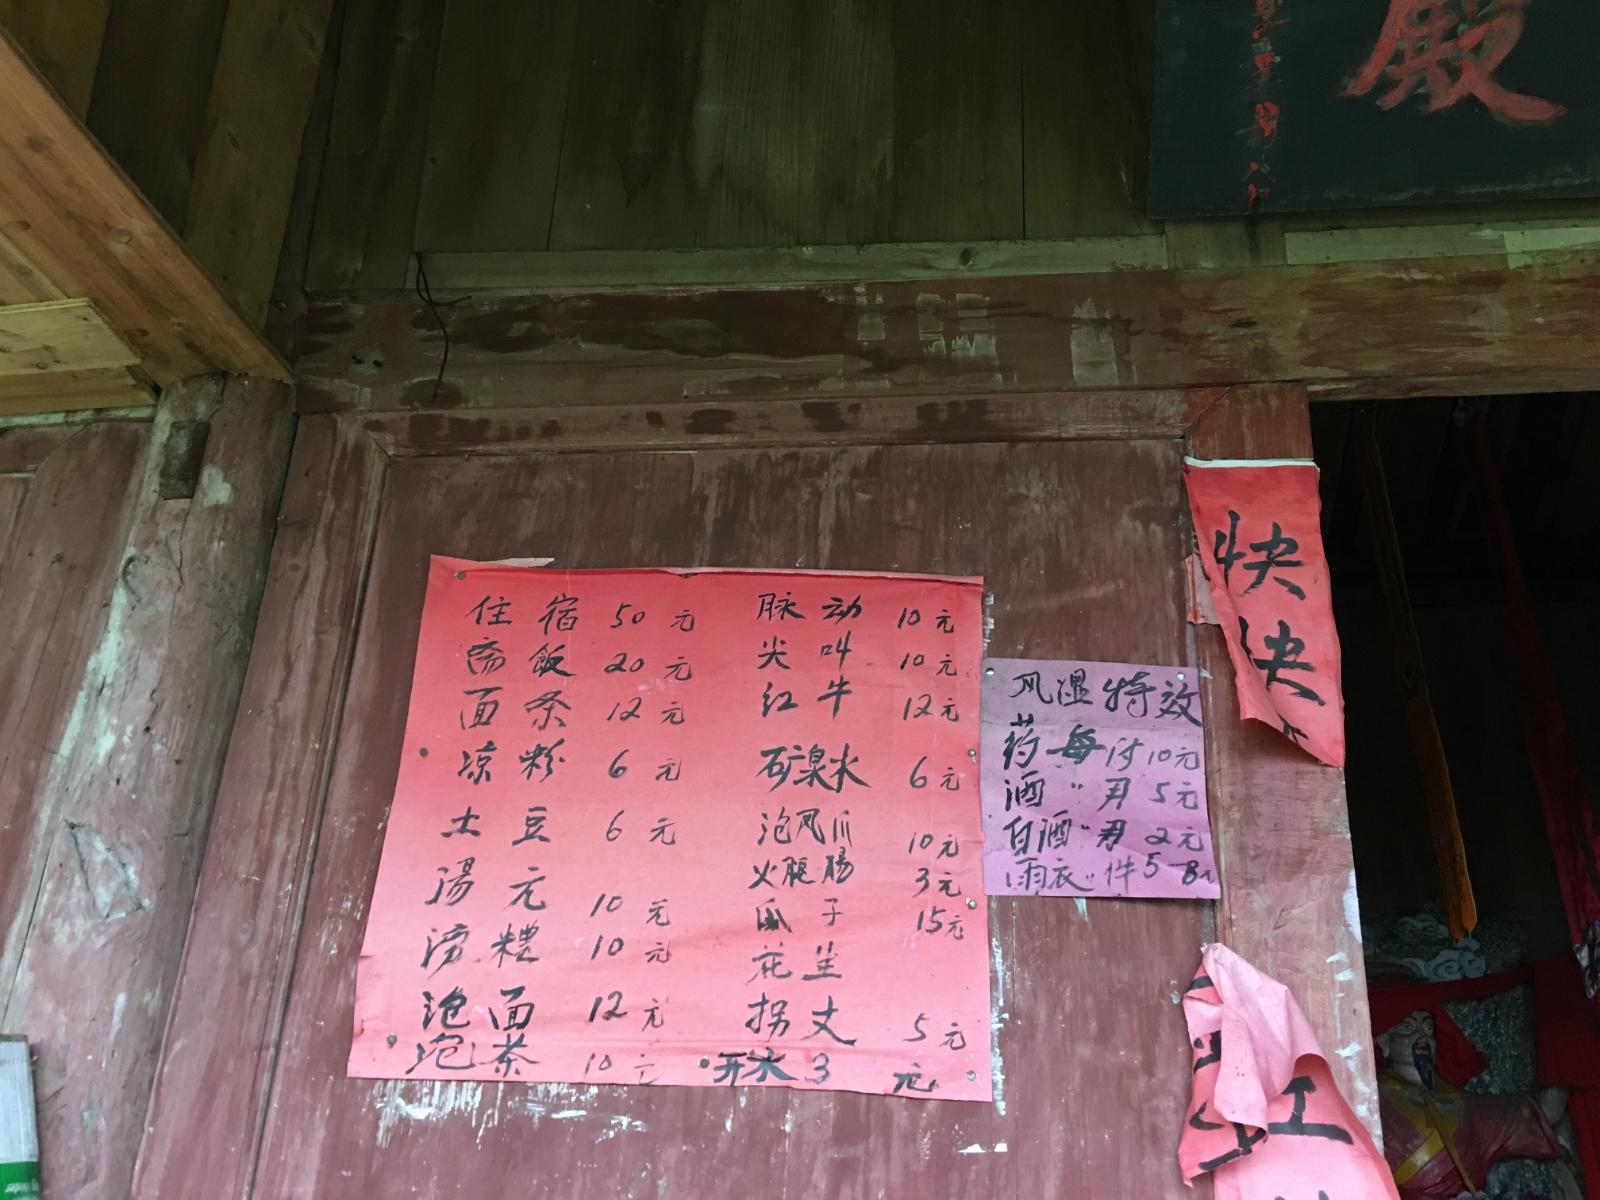 殿
住宿 50元
斋飯 20元
面条 12元
凉粉 6元
土豆 6元
汤元 10元
涝糟 10元
泡面 12元
泡茶 10元
脉动 10元
尖叫 10元
红牛 12元
矿泉水 6元
泡凤爪 10元
火腿肠 3元
瓜子 15元
花生
拐丈 5元
开水 3元
风湿特效
药每付10元
酒〃 5元
白酒〃 2元
雨衣〃件5-8元
快
快